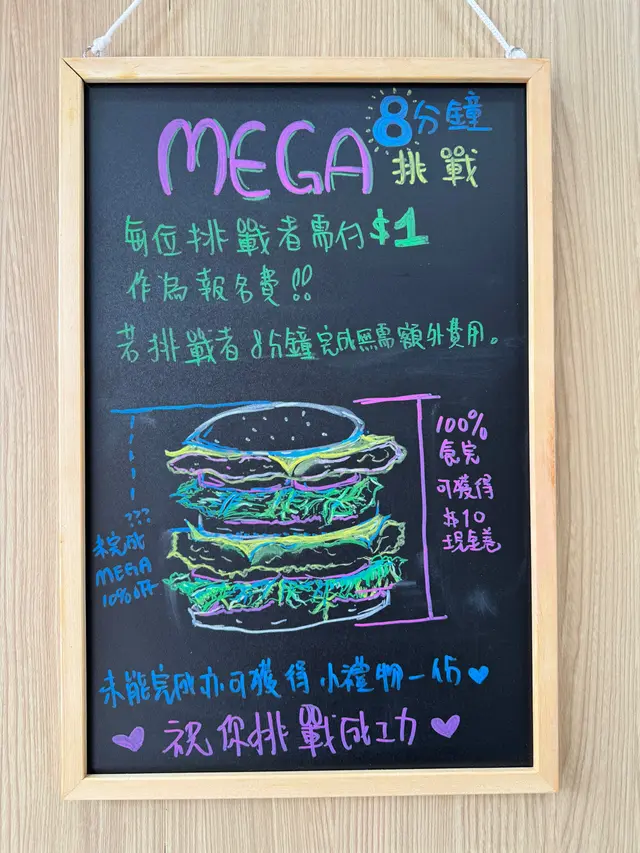 MEGA 8分鐘
挑戰
每位挑戰者需付$1
作為報名費!!
若挑戰者8分鐘完成無需額外費用。
100%
食完
可獲得
$10
現金卷
???
未完成
MEGA
10% off
未能完成亦可獲得小禮物一份♥
♥祝你挑戰成功♥